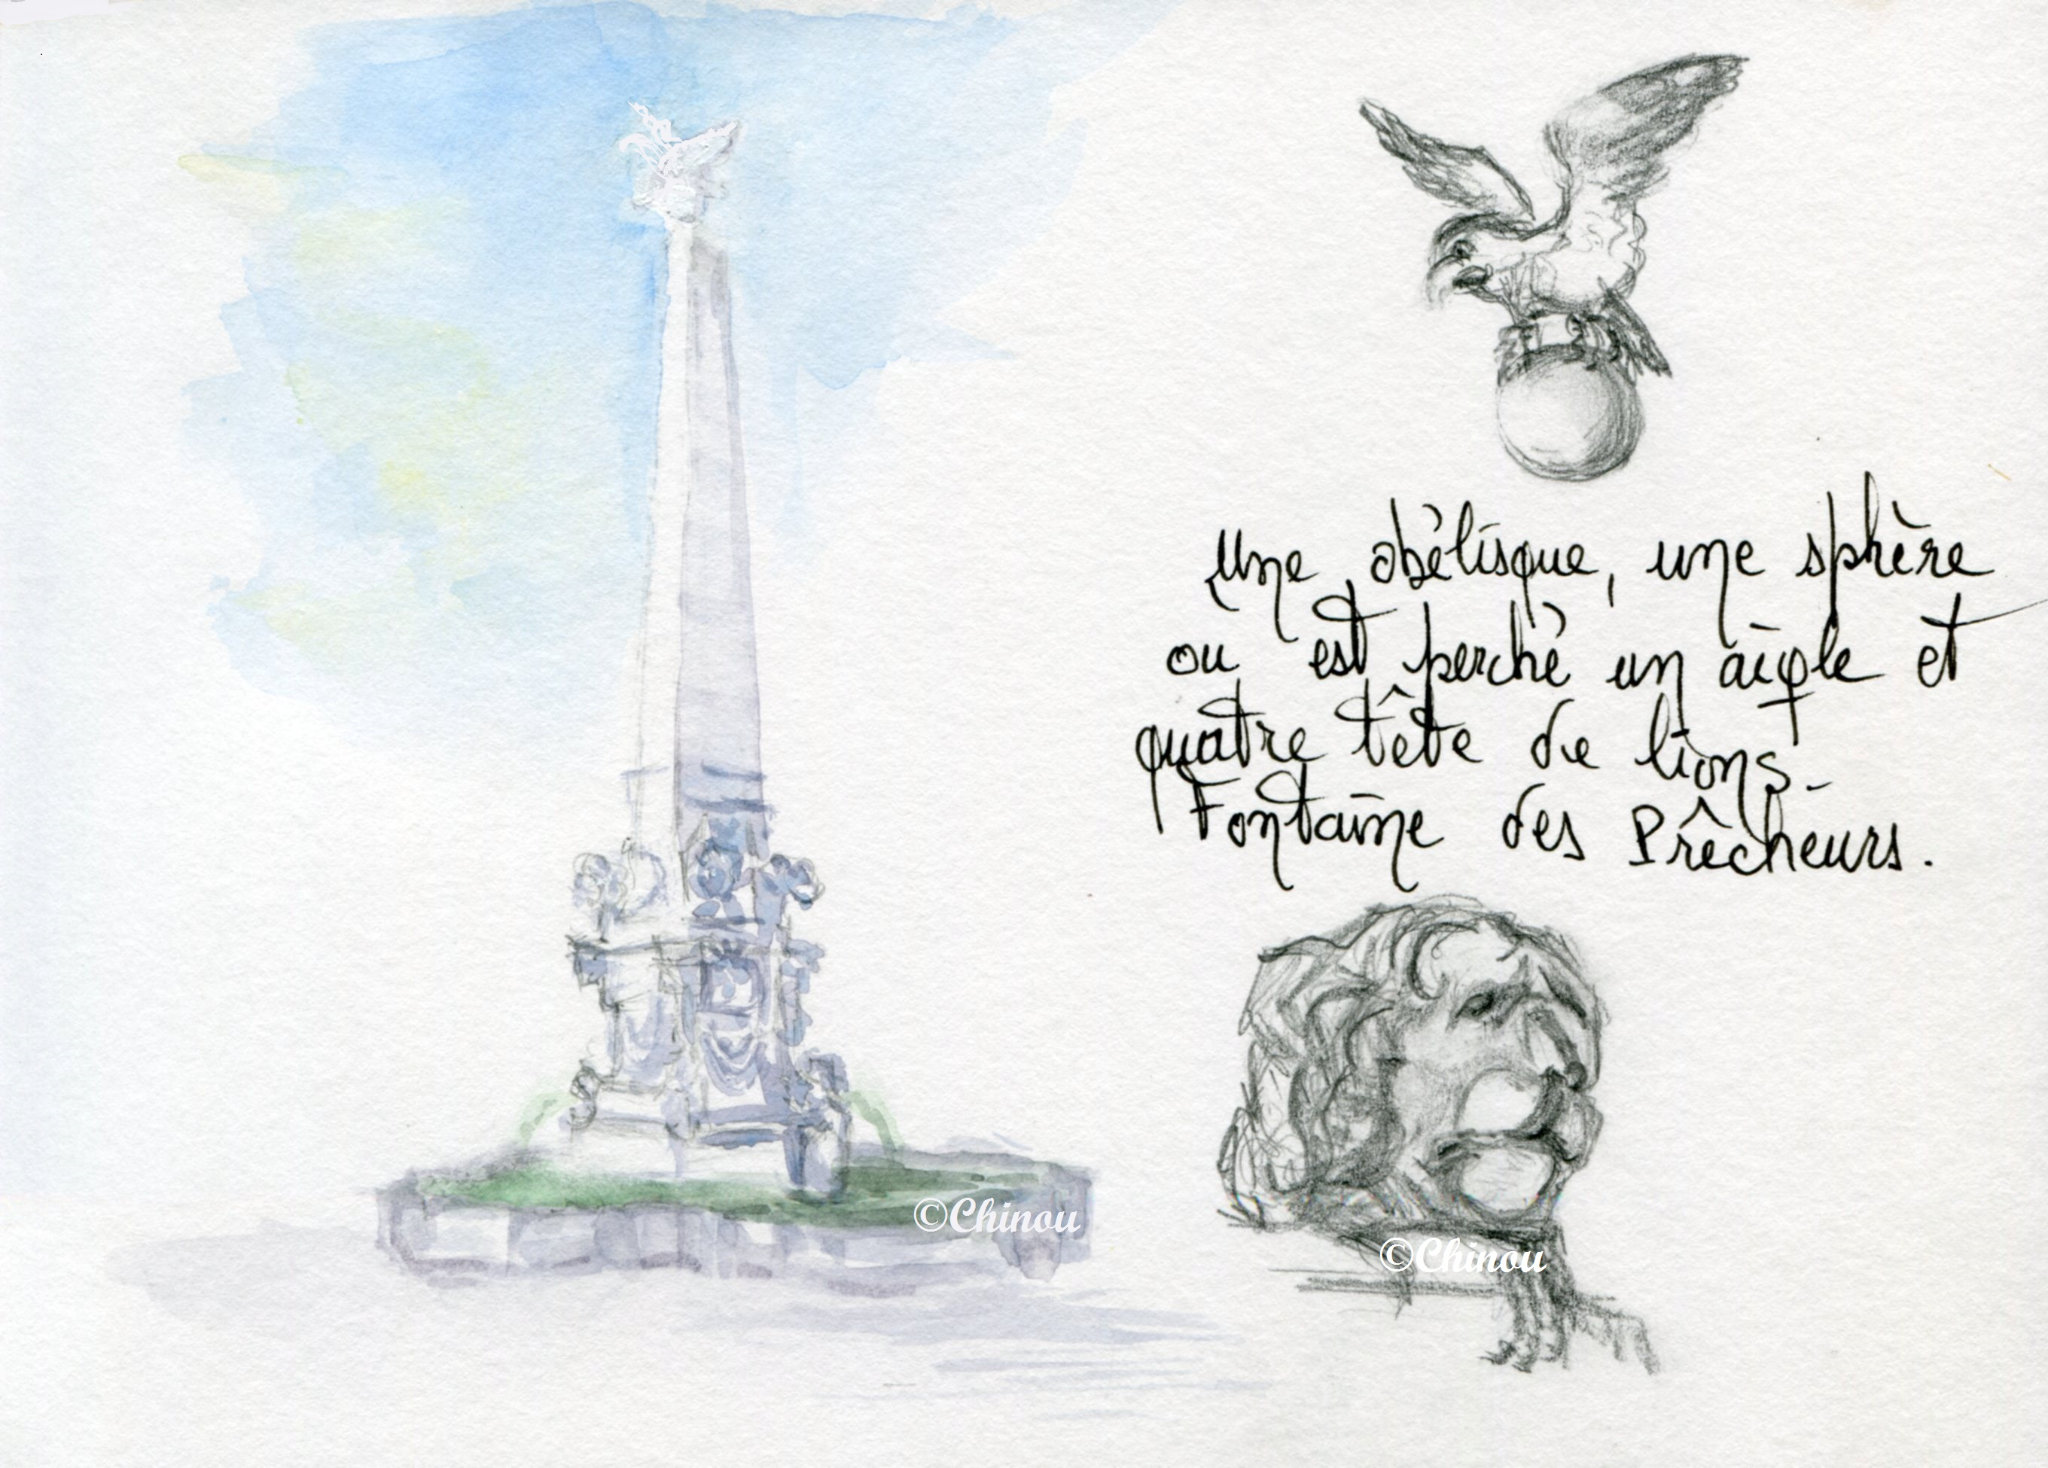 Une obélisque, une sphère
où est perché un aigle et
quatre tête de lions.
Fontaine des Prêcheurs.
©Chinou
©Chinou